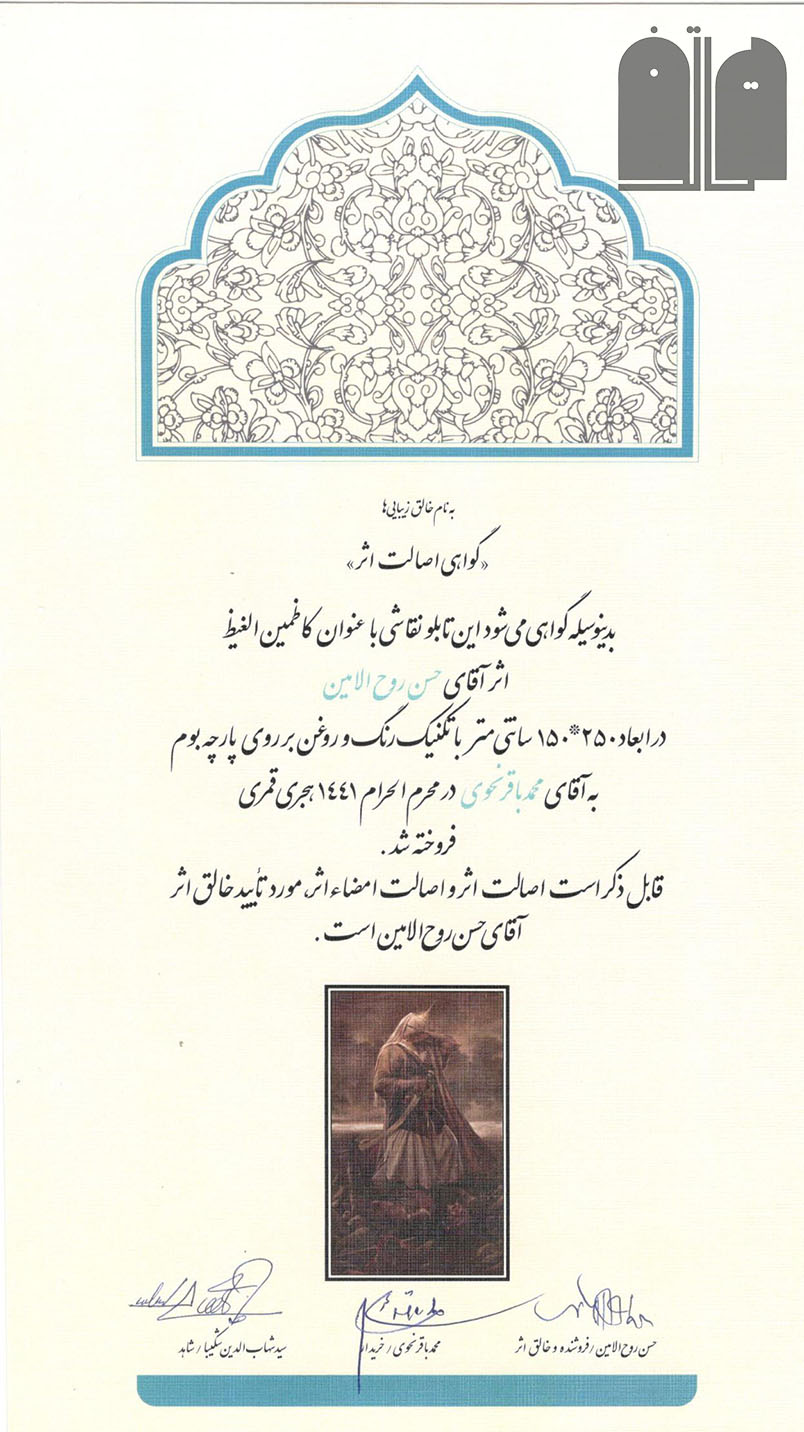 هاتف
به نام خالق زیبایی‌ها
«گواهی اصالت اثر»
بدینوسیله گواهی می‌شود این تابلو نقاشی با عنوان کاظمین الغیظ
اثر آقای حسن روح الامین
در ابعاد ۲۵۰*۱۵۰ سانتی‌متر با تکنیک رنگ و روغن بر روی پارچه بوم
به آقای محمد باقر نحوی در محرم الحرام ۱۴۴۱ هجری قمری
فروخته شد.
قابل ذکر است اصالت اثر و اصالت امضاء اثر، مورد تأیید خالق اثر
آقای حسن روح الامین است.
حسن روح الامین / فروشنده و خالق اثر
محمد باقر نحوی / خریدار
سید شهاب الدین شکیبا / شاهد